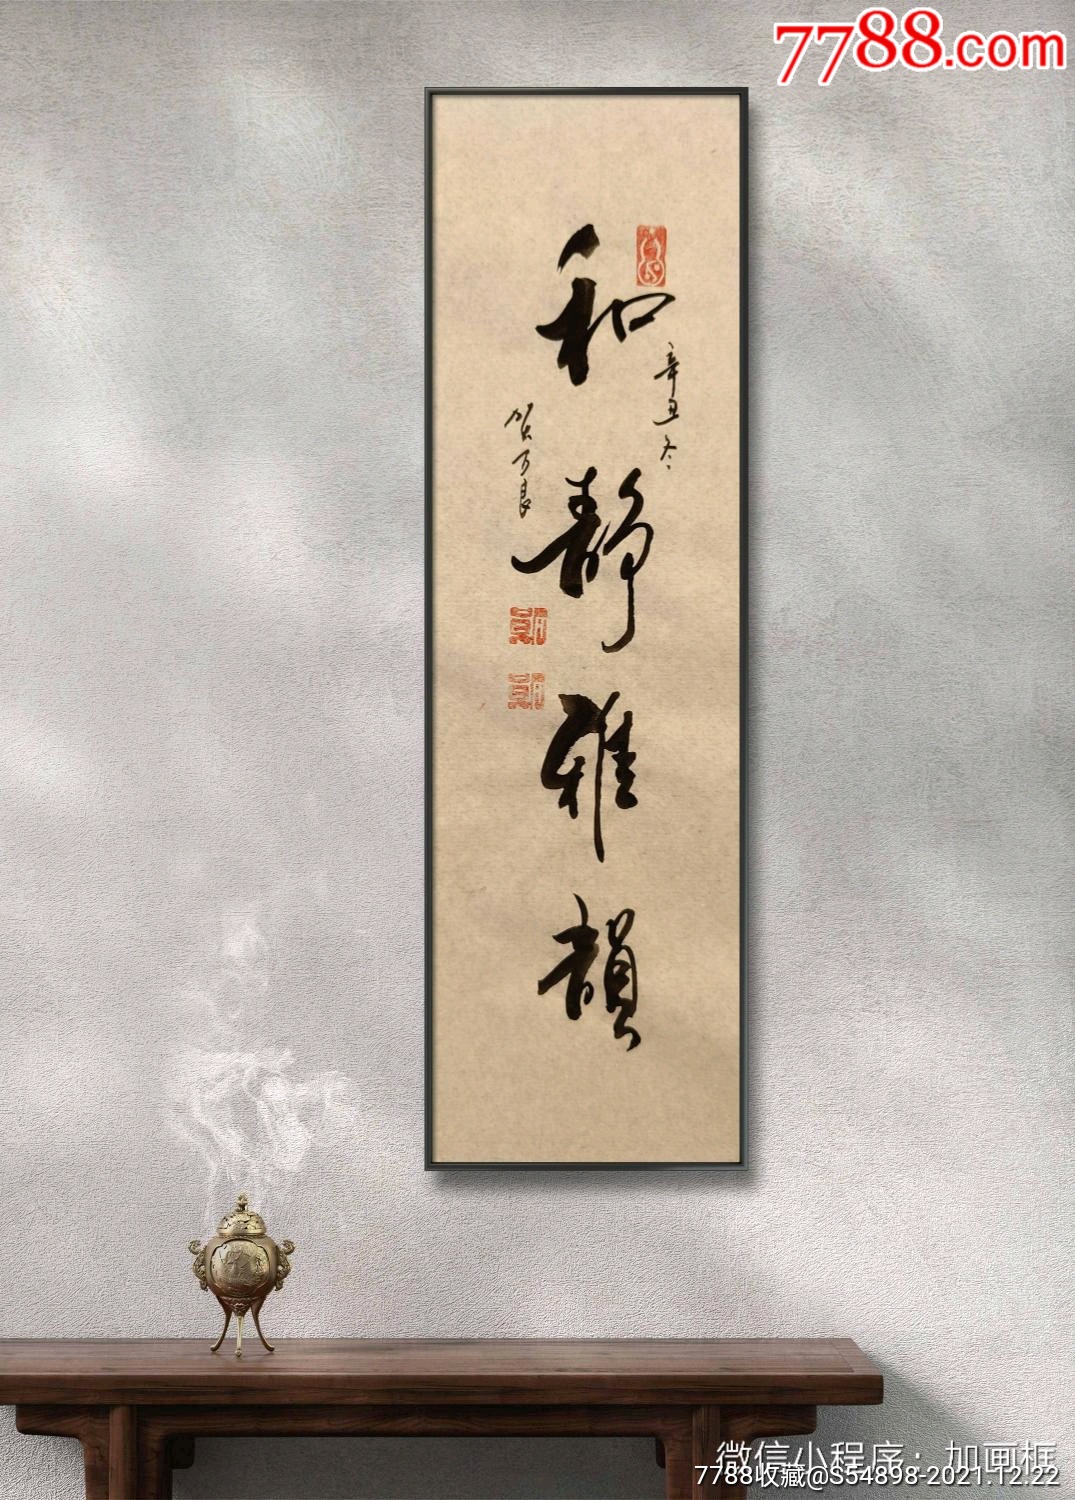 7788.com
和靜雅韻
辛丑冬
贺万良
微信小程序：加画框
7788收藏@S54898-2021.12.22